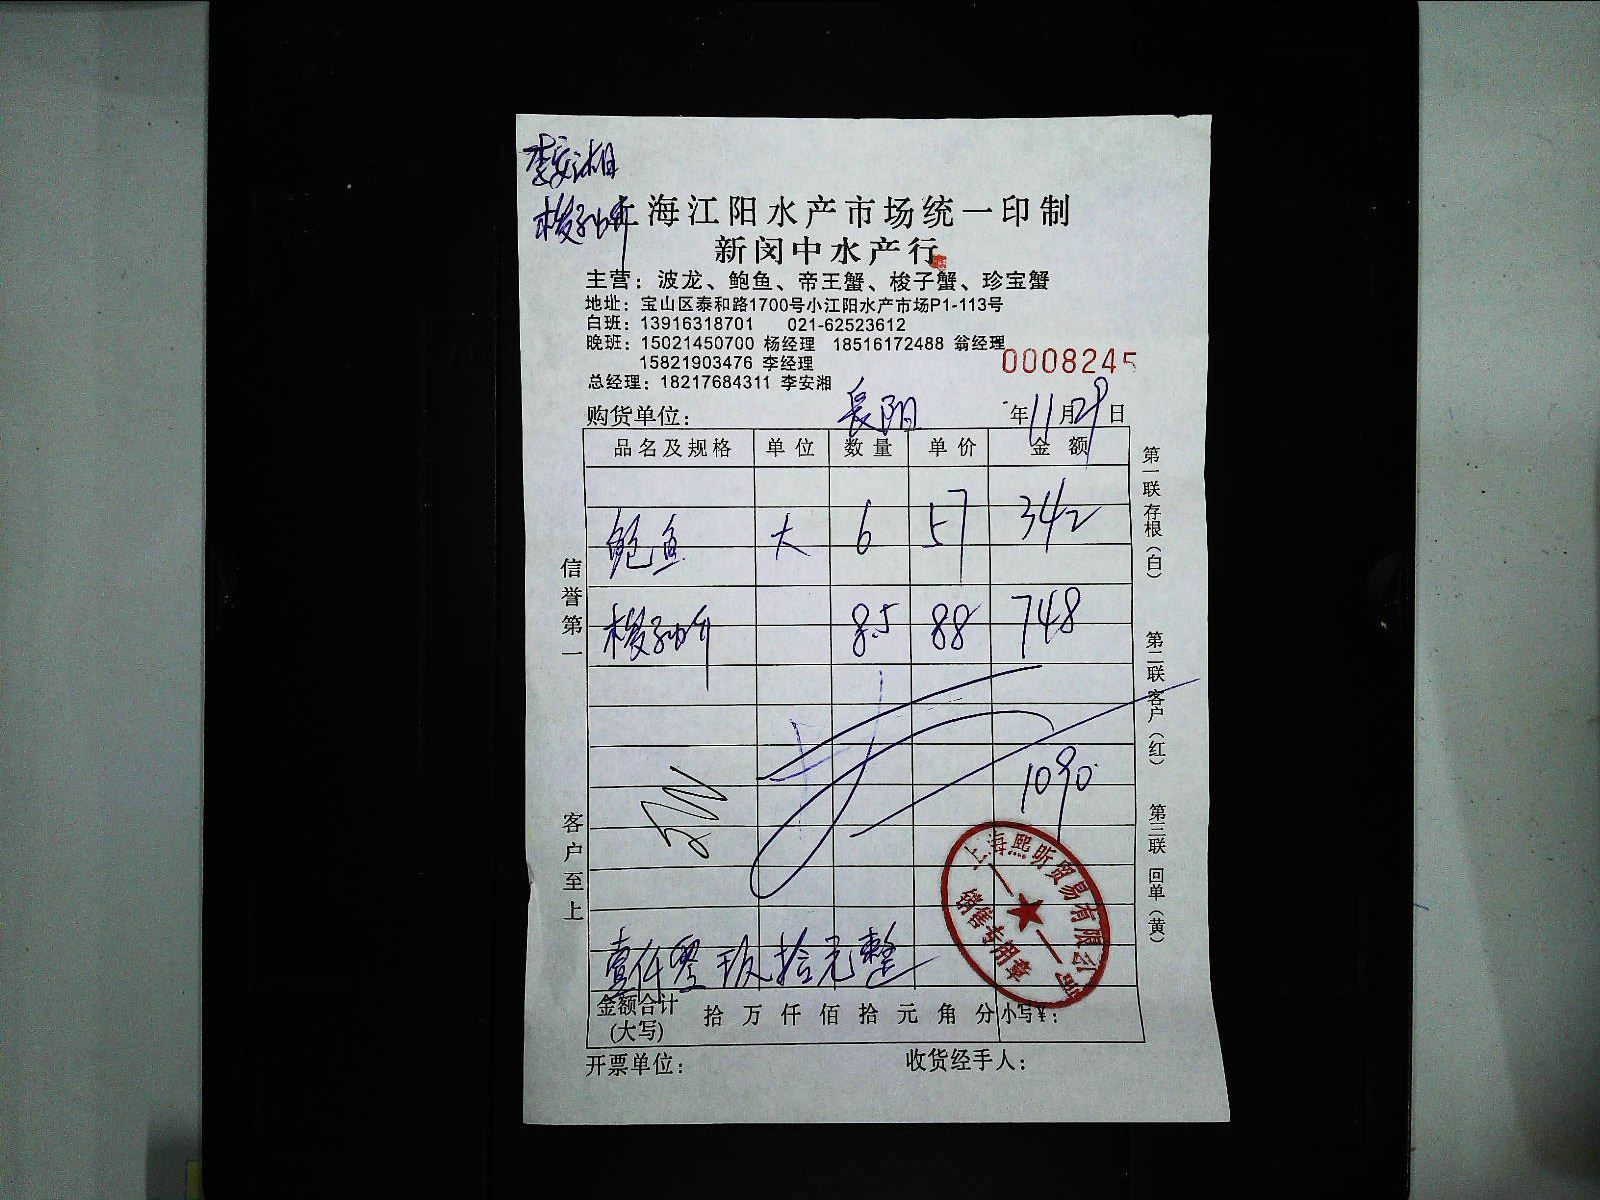 李安湘
梭子蟹
上海江阳水产市场统一印制
新闵中水产行
主营：波龙、鲍鱼、帝王蟹、梭子蟹、珍宝蟹
地址：宝山区泰和路1700号小江阳水产市场P1-113号
白班：13916318701 021-62523612
晚班：15021450700 杨经理 18516172488 翁经理
15821903476 李经理
0008245
总经理：18217684311 李安湘
购货单位：長阳 年11月29日
品名及规格 单位 数量 单价 金额
鲍鱼 大 6 57 342
梭子 8.5 88 748
1090
壹仟零玖拾元整
金额合计(大写) 拾 万 仟 佰 拾 元 角 分 小写¥：
开票单位： 收货经手人：
信誉第一
客户至上
第一联 存根（白）
第二联 客户（红）
第三联 回单（黄）
上海熙昕贸易有限公司
销售专用章